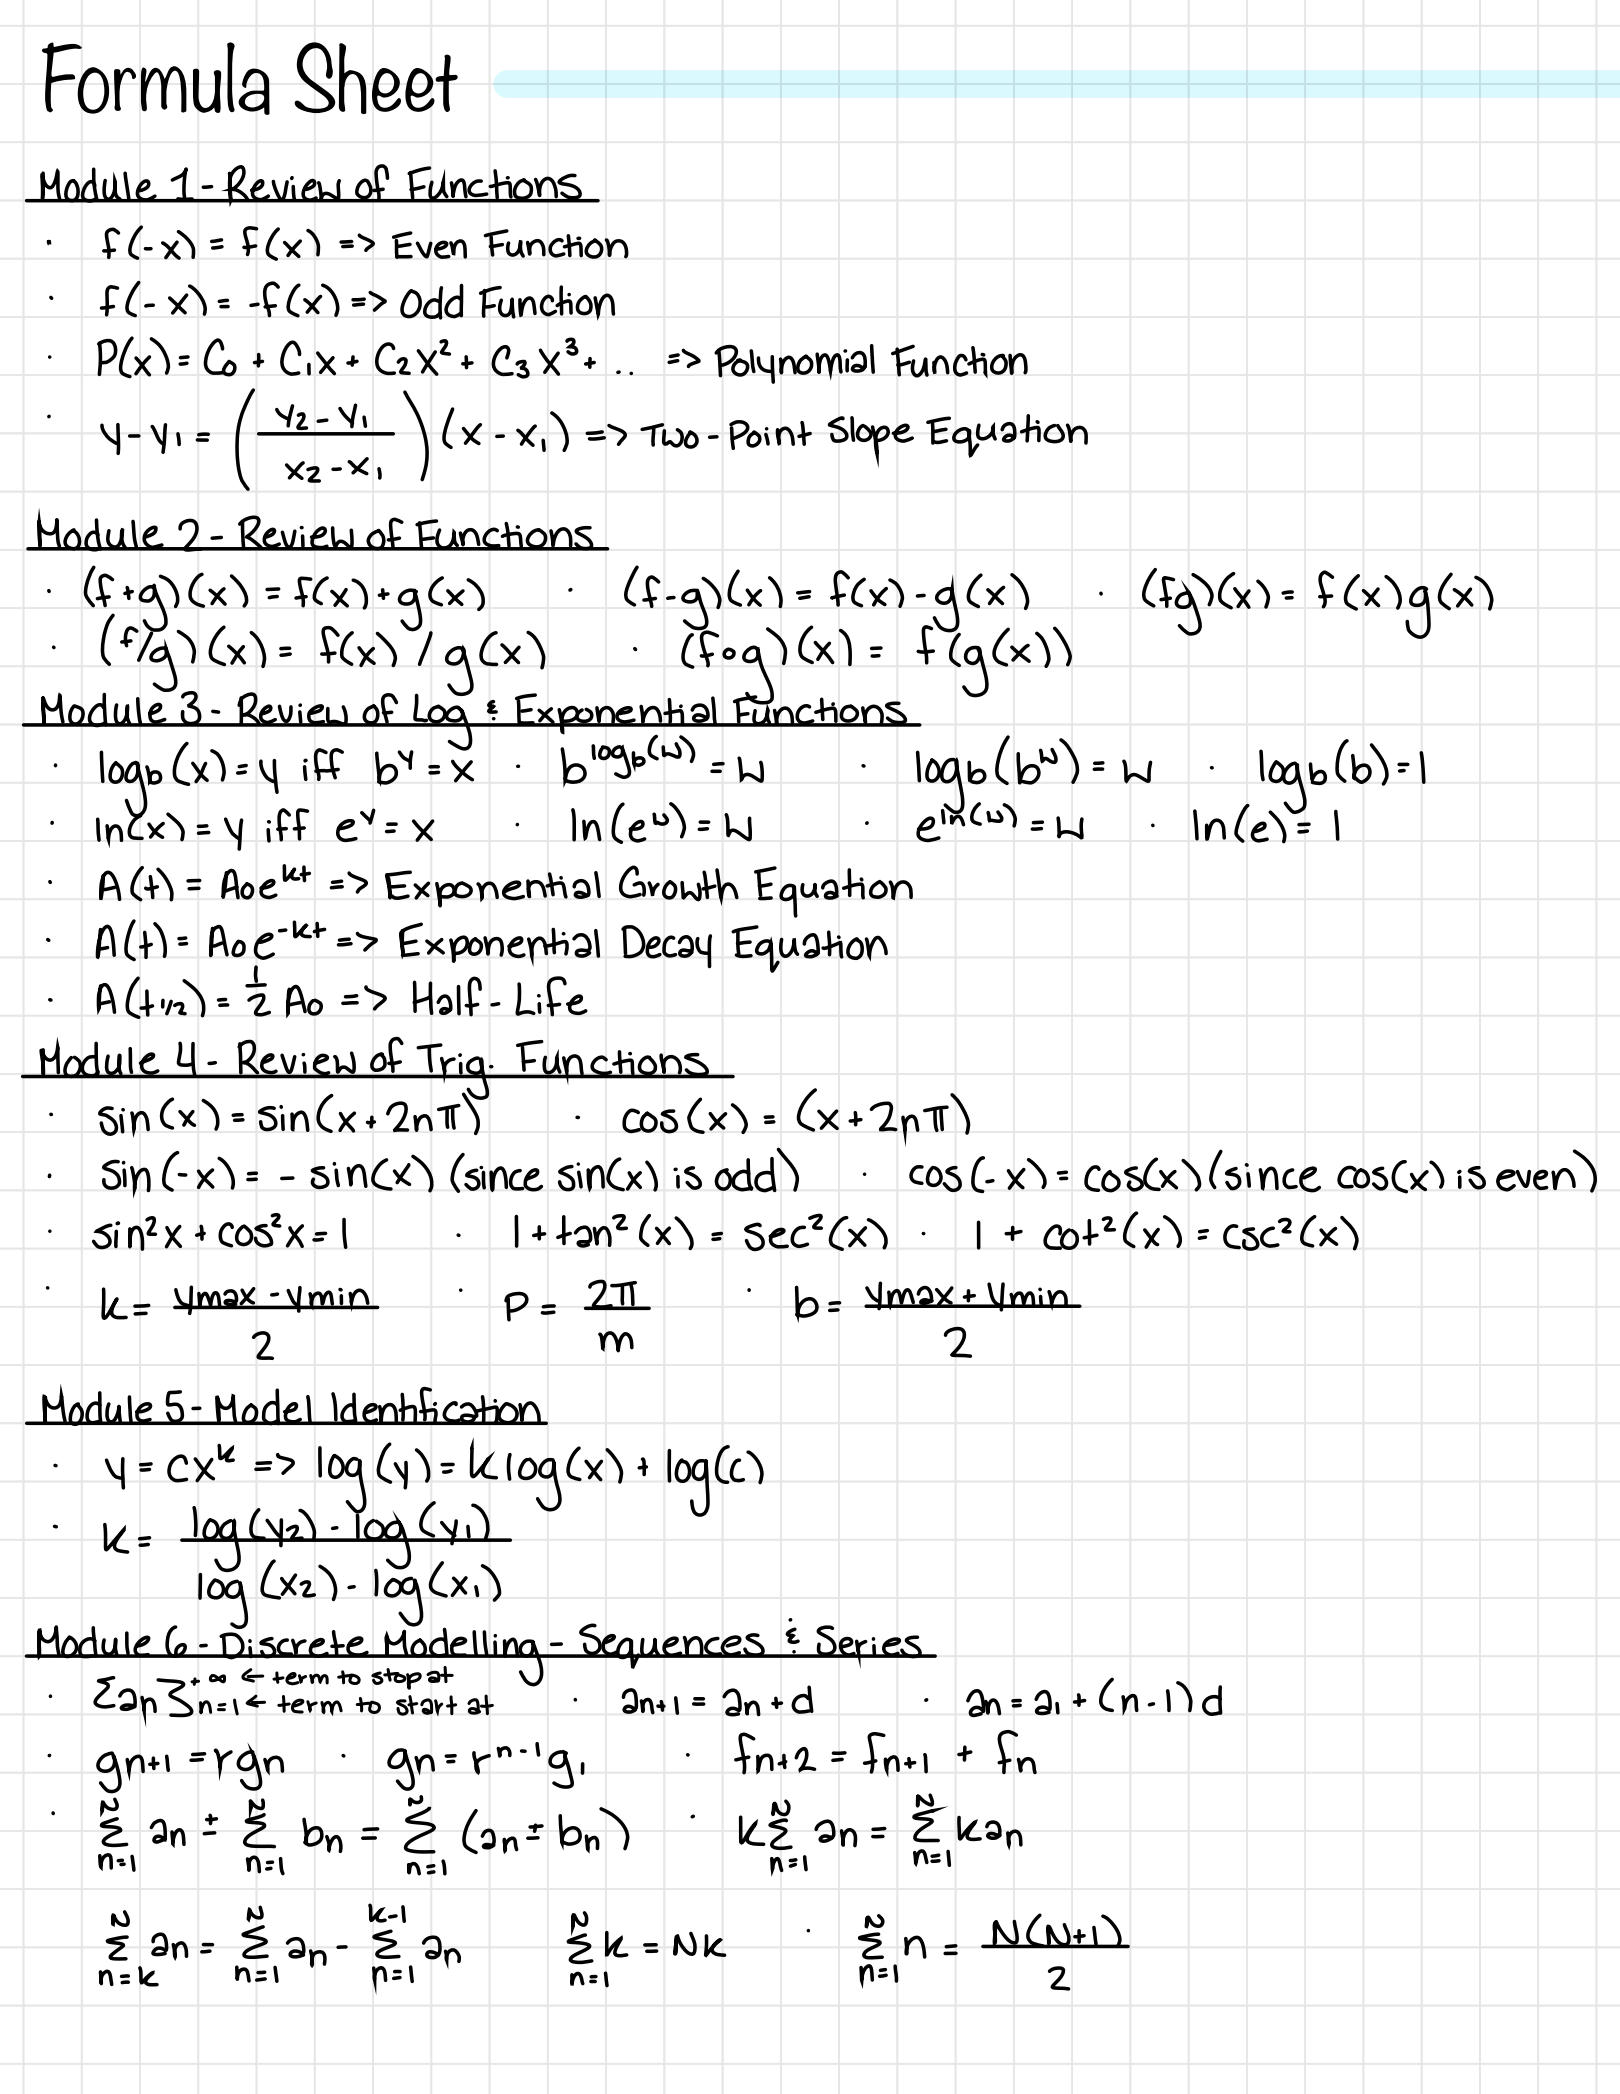 Formula Sheet
Module 1 - Review of Functions
· f(-x) = f(x) => Even Function
· f(-x) = -f(x) => Odd Function
· P(x) = C₀ + C₁x + C₂x² + C₃x³ + .. => Polynomial Function
· y - y₁ = ( (y₂ - y₁) / (x₂ - x₁) ) (x - x₁) => Two-Point Slope Equation
Module 2 - Review of Functions
· (f+g)(x) = f(x)+g(x) · (f-g)(x) = f(x)-g(x) · (fg)(x) = f(x)g(x)
· (f/g)(x) = f(x)/g(x) · (f∘g)(x) = f(g(x))
Module 3 - Review of Log & Exponential Functions
· log_b(x) = y iff b^y = x · b^(log_b(w)) = w · log_b(b^w) = w · log_b(b) = 1
· ln(x) = y iff e^y = x · ln(e^w) = w · e^(ln(w)) = w · ln(e) = 1
· A(t) = A₀e^(kt) => Exponential Growth Equation
· A(t) = A₀e^(-kt) => Exponential Decay Equation
· A(t_1/2) = 1/2 A₀ => Half-Life
Module 4 - Review of Trig. Functions
· sin(x) = sin(x+2nπ) · cos(x) = (x+2nπ)
· sin(-x) = - sin(x) (since sin(x) is odd) · cos(-x) = cos(x) (since cos(x) is even)
· sin²x + cos²x = 1 · 1 + tan²(x) = sec²(x) · 1 + cot²(x) = csc²(x)
· k = (ymax - ymin) / 2 · P = 2π / m · b = (ymax + ymin) / 2
Module 5 - Model Identification
· y = cx^k => log(y) = klog(x) + log(c)
· k = (log(y₂) - log(y₁)) / (log(x₂) - log(x₁))
Module 6 - Discrete Modelling - Sequences & Series
· {a_n}^(+∞ ← term to stop at)_(n=1 ← term to start at) · a_(n+1) = a_n + d · a_n = a₁ + (n-1)d
· g_(n+1) = rg_n · g_n = r^(n-1) g₁ · f_(n+2) = f_(n+1) + f_n
· Σ_(n=1)^N a_n ± Σ_(n=1)^N b_n = Σ_(n=1)^N (a_n ± b_n) · k Σ_(n=1)^N a_n = Σ_(n=1)^N ka_n
Σ_(n=k)^N a_n = Σ_(n=1)^N a_n - Σ_(n=1)^(k-1) a_n Σ_(n=1)^N k = Nk · Σ_(n=1)^N n = N(N+1) / 2